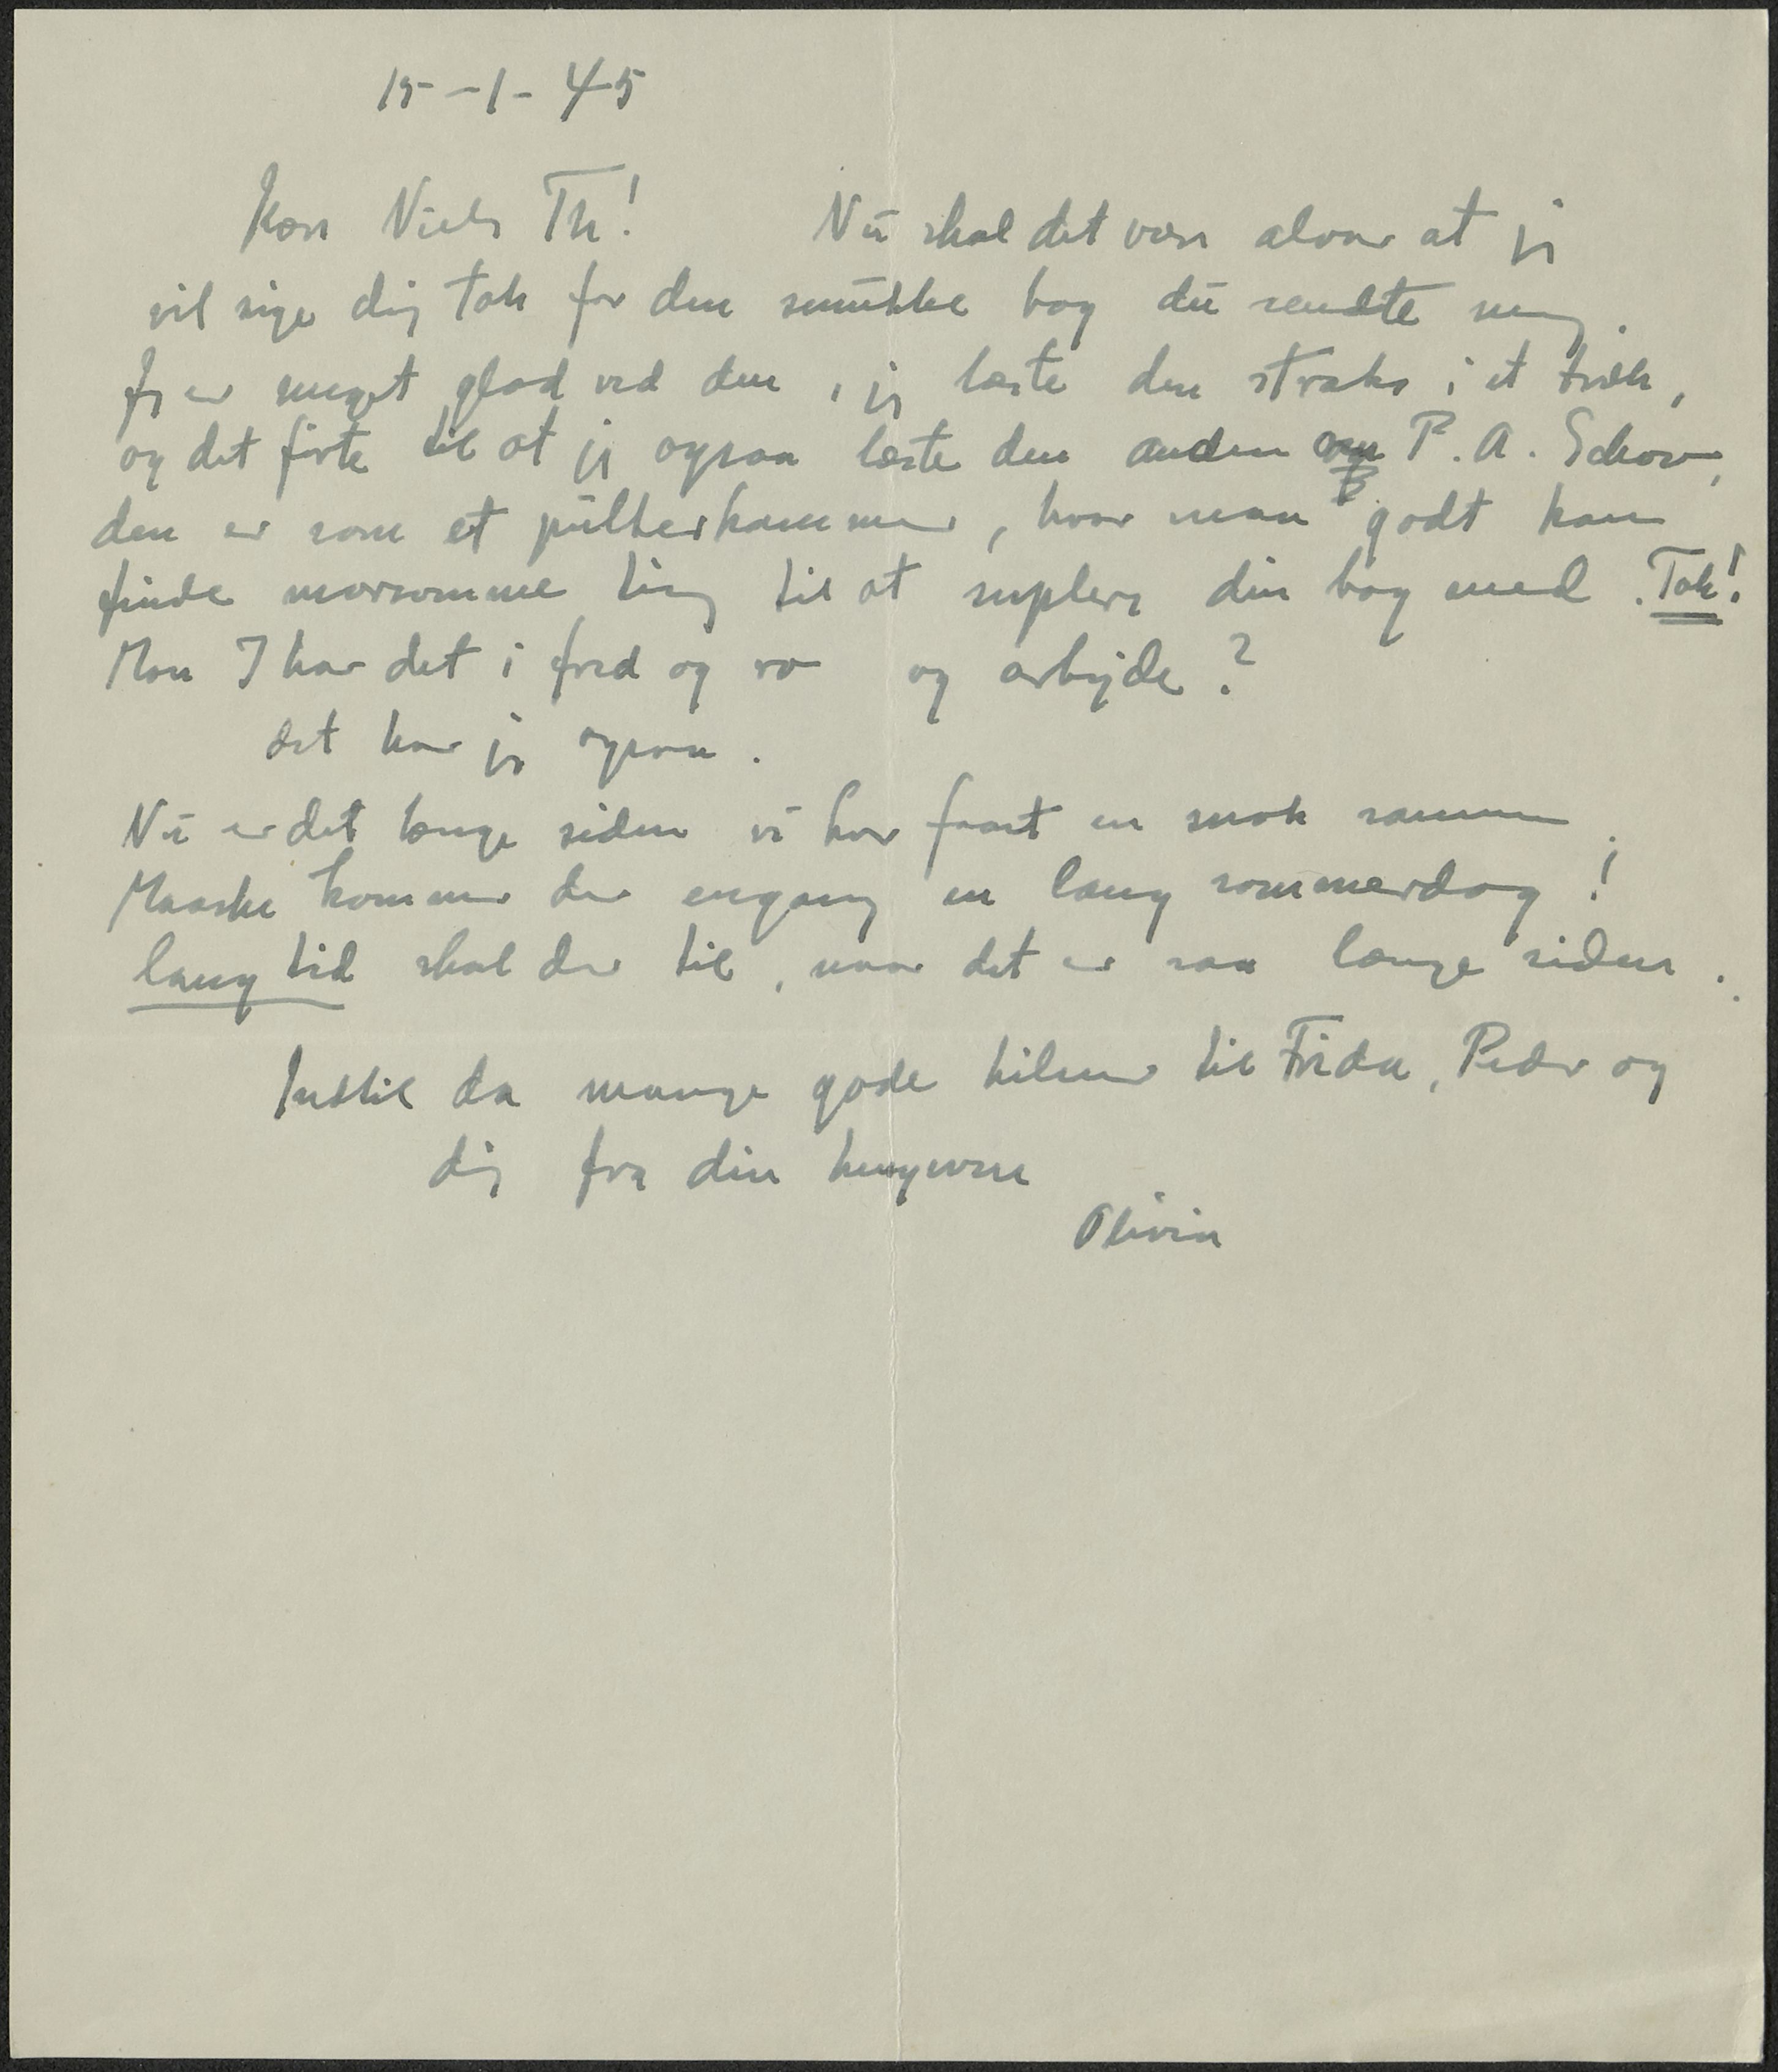 15-1-45
Kære Niels Th! Nu skal det være alvor at jeg
vil sige dig tak for den smukke bog du sendte mig.
Jeg er meget glad ved den, jeg læste den straks i et træk,
og det førte til at jeg ogsaa læste den anden om P. A. Schou,
den er som et pulterkammer, hvor man godt kan
finde morsomme ting til at suplere din bog med. Tak!
Mon I har det i fred og ro og arbejde?
det har jeg ogsaa.
Nu er det længe siden vi har faaet en snak sammen.
Maaske kommer der engang en lang sommerdag!
lang tid skal der til, naar det er saa længe siden.
Indtil da mange gode hilsner til Frida, Peder og
dig fra din hengivne
Olivia